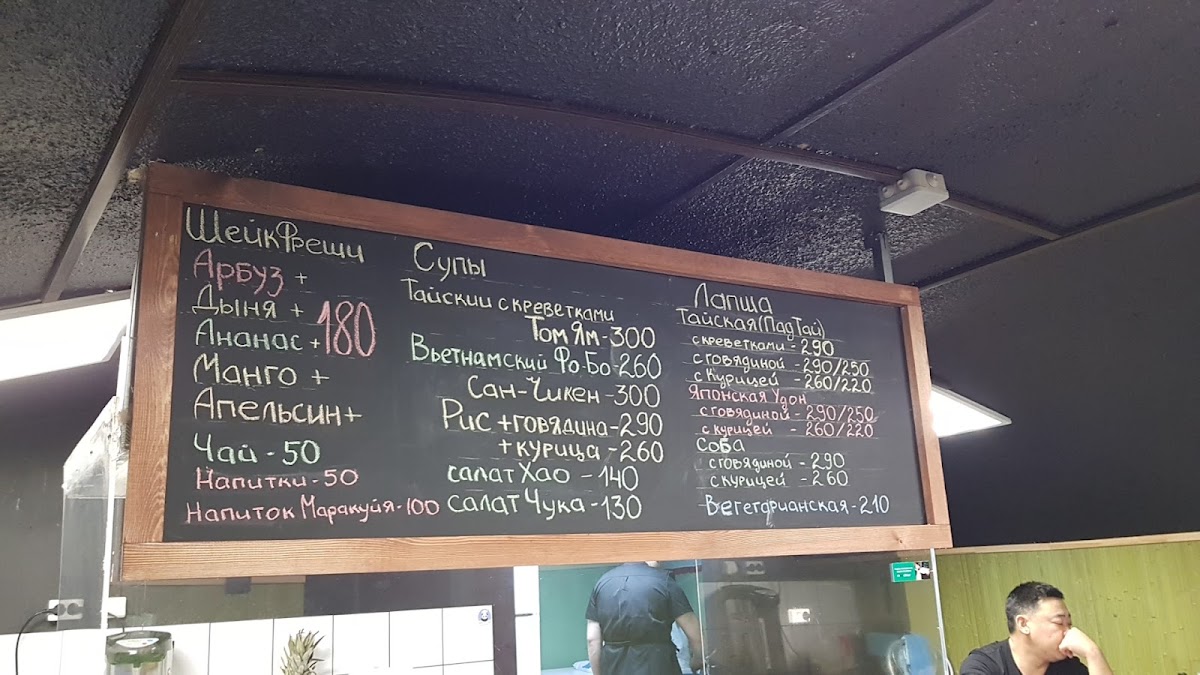 ШейкФрещи
Арбуз +
Дыня +
Ананас +
180
Манго +
Апельсин+
Чай - 50
Напитки - 50
Напиток Маракуйя - 100
Супы
Тайскии с креветками
Том Ям - 300
Вьетнамский Фо-Бо - 260
Сан-Чикен - 300
Рис + говядина - 290
+ курица - 260
салат Хао - 140
салат Чука - 130
Лапша
Тайская (Пад Тай)
с креветками - 290
с говядиной - 290/250
с Курицей - 260/220
Японская Удон
с говядиной - 290/250
с курицей - 260/220
Соба
с говядиной - 290
с курицей - 260
Вегетарианская - 210